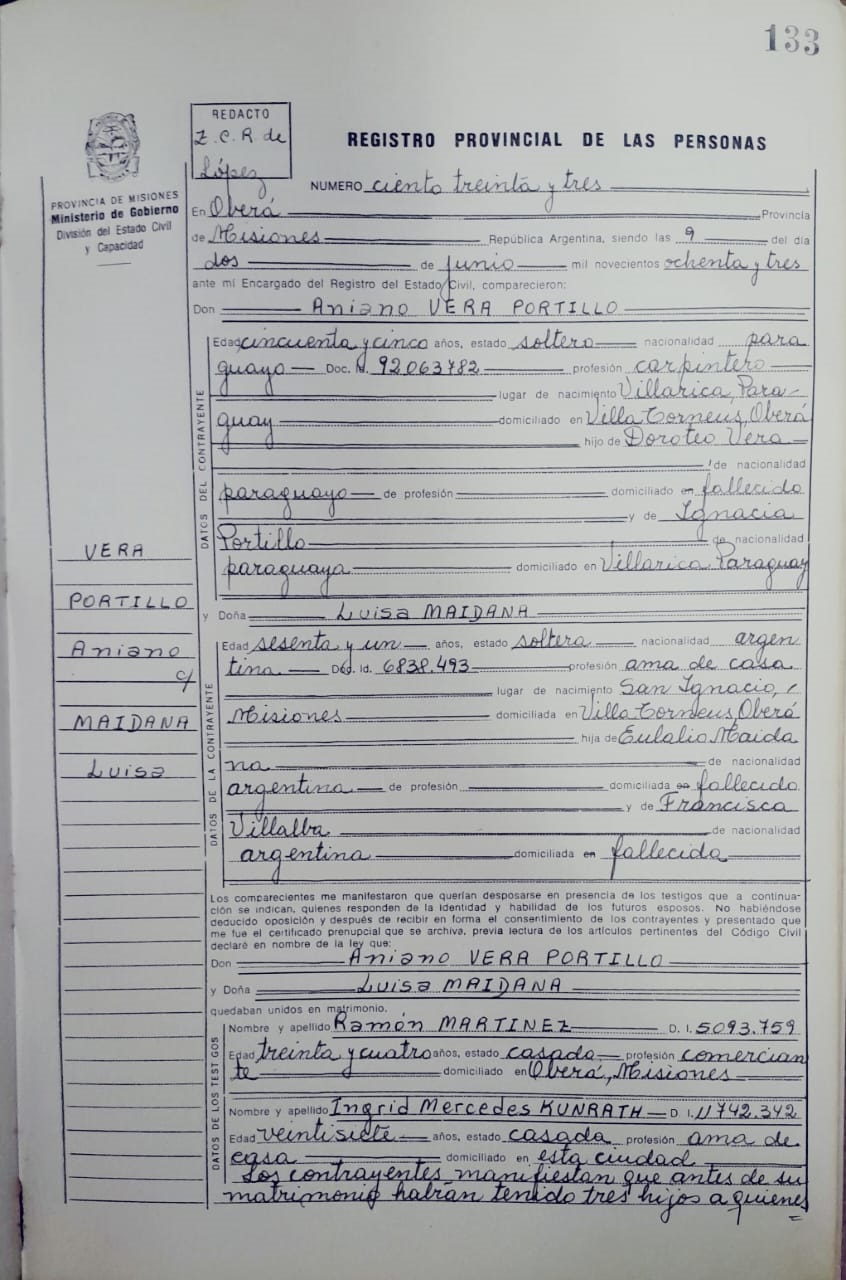 133
REDACTO
Z.C.R. de
López
REGISTRO PROVINCIAL DE LAS PERSONAS
PROVINCIA DE MISIONES
Ministerio de Gobierno
División del Estado Civil
y Capacidad
NUMERO ciento treinta y tres
En Oberá Provincia
de Misiones República Argentina, siendo las 9 del día
dos de junio mil novecientos ochenta y tres
ante mi Encargado del Registro del Estado Civil, comparecieron:
Don Aniano VERA PORTILLO
DATOS DEL CONTRAYENTE
Edad cincuenta y cinco años, estado soltero nacionalidad para
guayo Doc. Id. 92.063.782 profesión carpintero
lugar de nacimiento Villarica, Para-
guay domiciliado en Villa Torneus, Oberá
hijo de Doroteo Vera
de nacionalidad
paraguayo de profesión domiciliado en fallecido
y de Ignacia
Portillo de nacionalidad
paraguaya domiciliado en Villarica, Paraguay
VERA
PORTILLO
Aniano
c/
MAIDANA
Luisa
y Doña Luisa MAIDANA
DATOS DE LA CONTRAYENTE
Edad sesenta y un años, estado soltera nacionalidad argen
tina Doc. Id. 6838.493 profesión ama de casa
lugar de nacimiento San Ignacio,
Misiones domiciliada en Villa Torneus, Oberá
hija de Eulalio Maida
na de nacionalidad
argentina de profesión domiciliada en fallecido
y de Francisca
Villalba de nacionalidad
argentina domiciliada en fallecida
Los comparecientes me manifestaron que querían desposarse en presencia de los testigos que a continua-
ción se indican, quienes responden de la identidad y habilidad de los futuros esposos. No habiéndose
deducido oposición y después de recibir en forma el consentimiento de los contrayentes y presentado que
me fue el certificado prenupcial que se archiva, previa lectura de los artículos pertinentes del Código Civil
declaré en nombre de la ley que:
Don Aniano VERA PORTILLO
y Doña Luisa MAIDANA
quedaban unidos en matrimonio.
DATOS DE LOS TESTIGOS
Nombre y apellido Ramón MARTINEZ D. I. 5.093.759
Edad treinta y cuatro años, estado casada profesión comercian
te domiciliado en Oberá, Misiones
Nombre y apellido Ingrid Mercedes KUNRATH D I. 11.742.342
Edad veintisiete años, estado casada profesión ama de
casa domiciliado en esta ciudad
Los contrayentes manifiestan que antes de su
matrimonio habrán tenido tres hijos a quienes